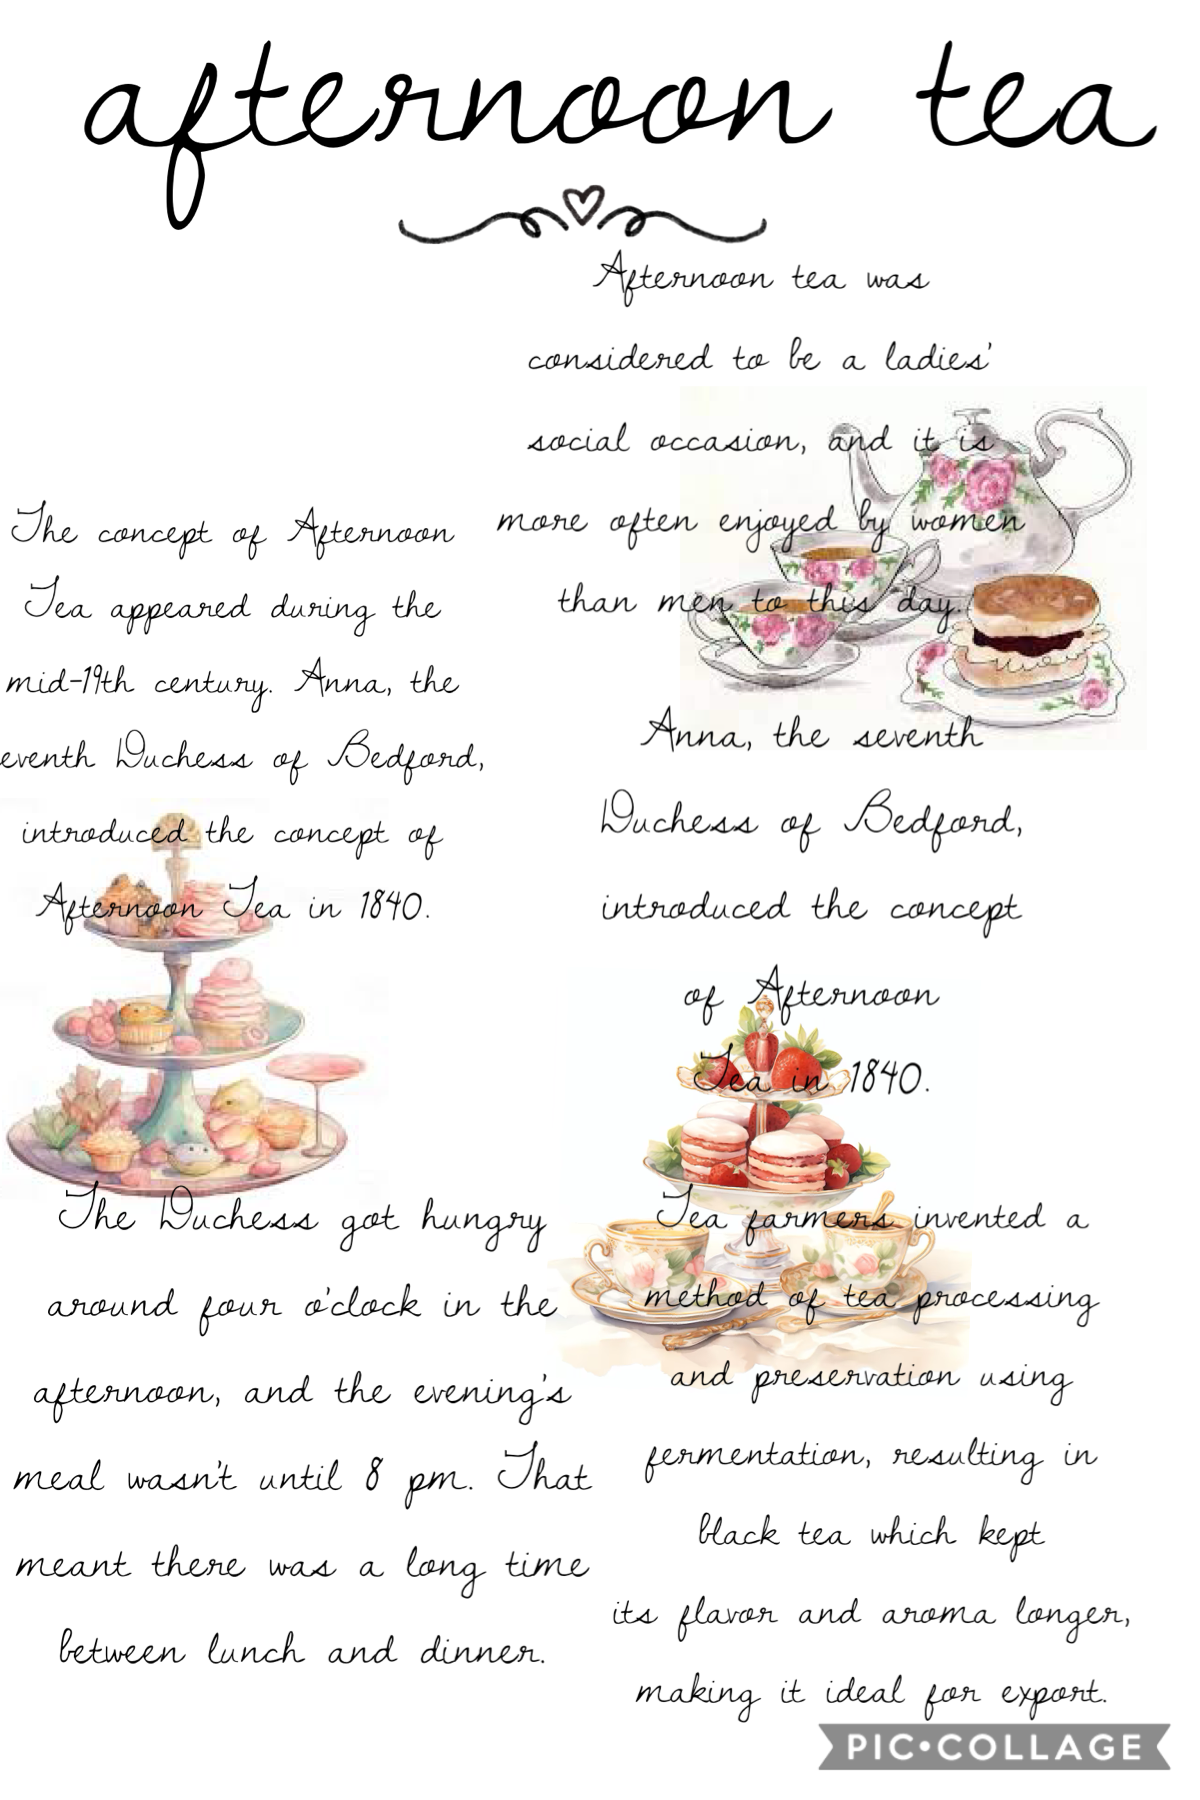 afternoon tea
Afternoon tea was
considered to be a ladies'
social occasion, and it is
more often enjoyed by women
than men to this day.
The concept of Afternoon
Tea appeared during the
mid-19th century. Anna, the
eventh Duchess of Bedford,
introduced the concept of
Afternoon Tea in 1840.
Anna, the seventh
Duchess of Bedford,
introduced the concept
of Afternoon
Tea in 1840.
The Duchess got hungry
around four o'clock in the
afternoon, and the evening's
meal wasn't until 8 pm. That
meant there was a long time
between lunch and dinner.
Tea farmers invented a
method of tea processing
and preservation using
fermentation, resulting in
black tea which kept
its flavor and aroma longer,
making it ideal for export.
PIC•COLLAGE